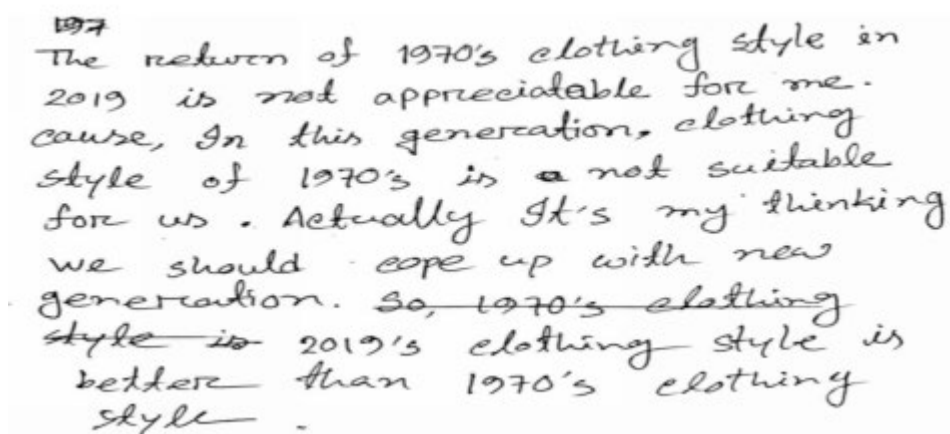 The return of 1970's clothing style in
2019 is not appreciatable for me.
cause, In this generation, clothing
style of 1970's is not suitable
for us. Actually It's my thinking
we should cope up with new
generation. So, 1970's clothing
style is 2019's clothing style is
better than 1970's clothing
style.